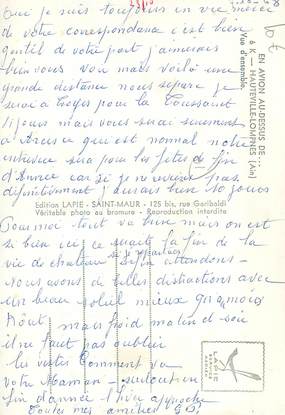 Oui je suis toujours en vie merci
de votre correspondance c'est bien
gentil de votre part j'aimerais
bien vous voir mais voilà une
grande distance nous sépare je
serai à Troyes pour la Toussaint
15 jours mais vous serai surement
à qu'est normal notre
entrevue sera pour les fêtes de fin
d'Année car si je ne reviens pas
définitivement j'aurais bien 10 jours
Pour moi tout va bien mais on est
si bien ici je souhaite la fin de la
vie de chateau enfin attendons
nous avons de belles distractions avec
un beau soleil mieux qu'au mois
Août mais froid matin et soir
il ne faut pas oublier
les vestes Comment va
votre Maman surtout en
fin d'année l'hiver approche
Toutes mes amitiés
EN AVION AU-DESSUS DE...
6 K — HAUTEVILLE-LOMPNES (Ain)
Vue d'ensemble.
Edition LAPIE - SAINT-MAUR - 125 bis, rue Garibaldi
Véritable photo au bromure - Reproduction interdite
LAPIE